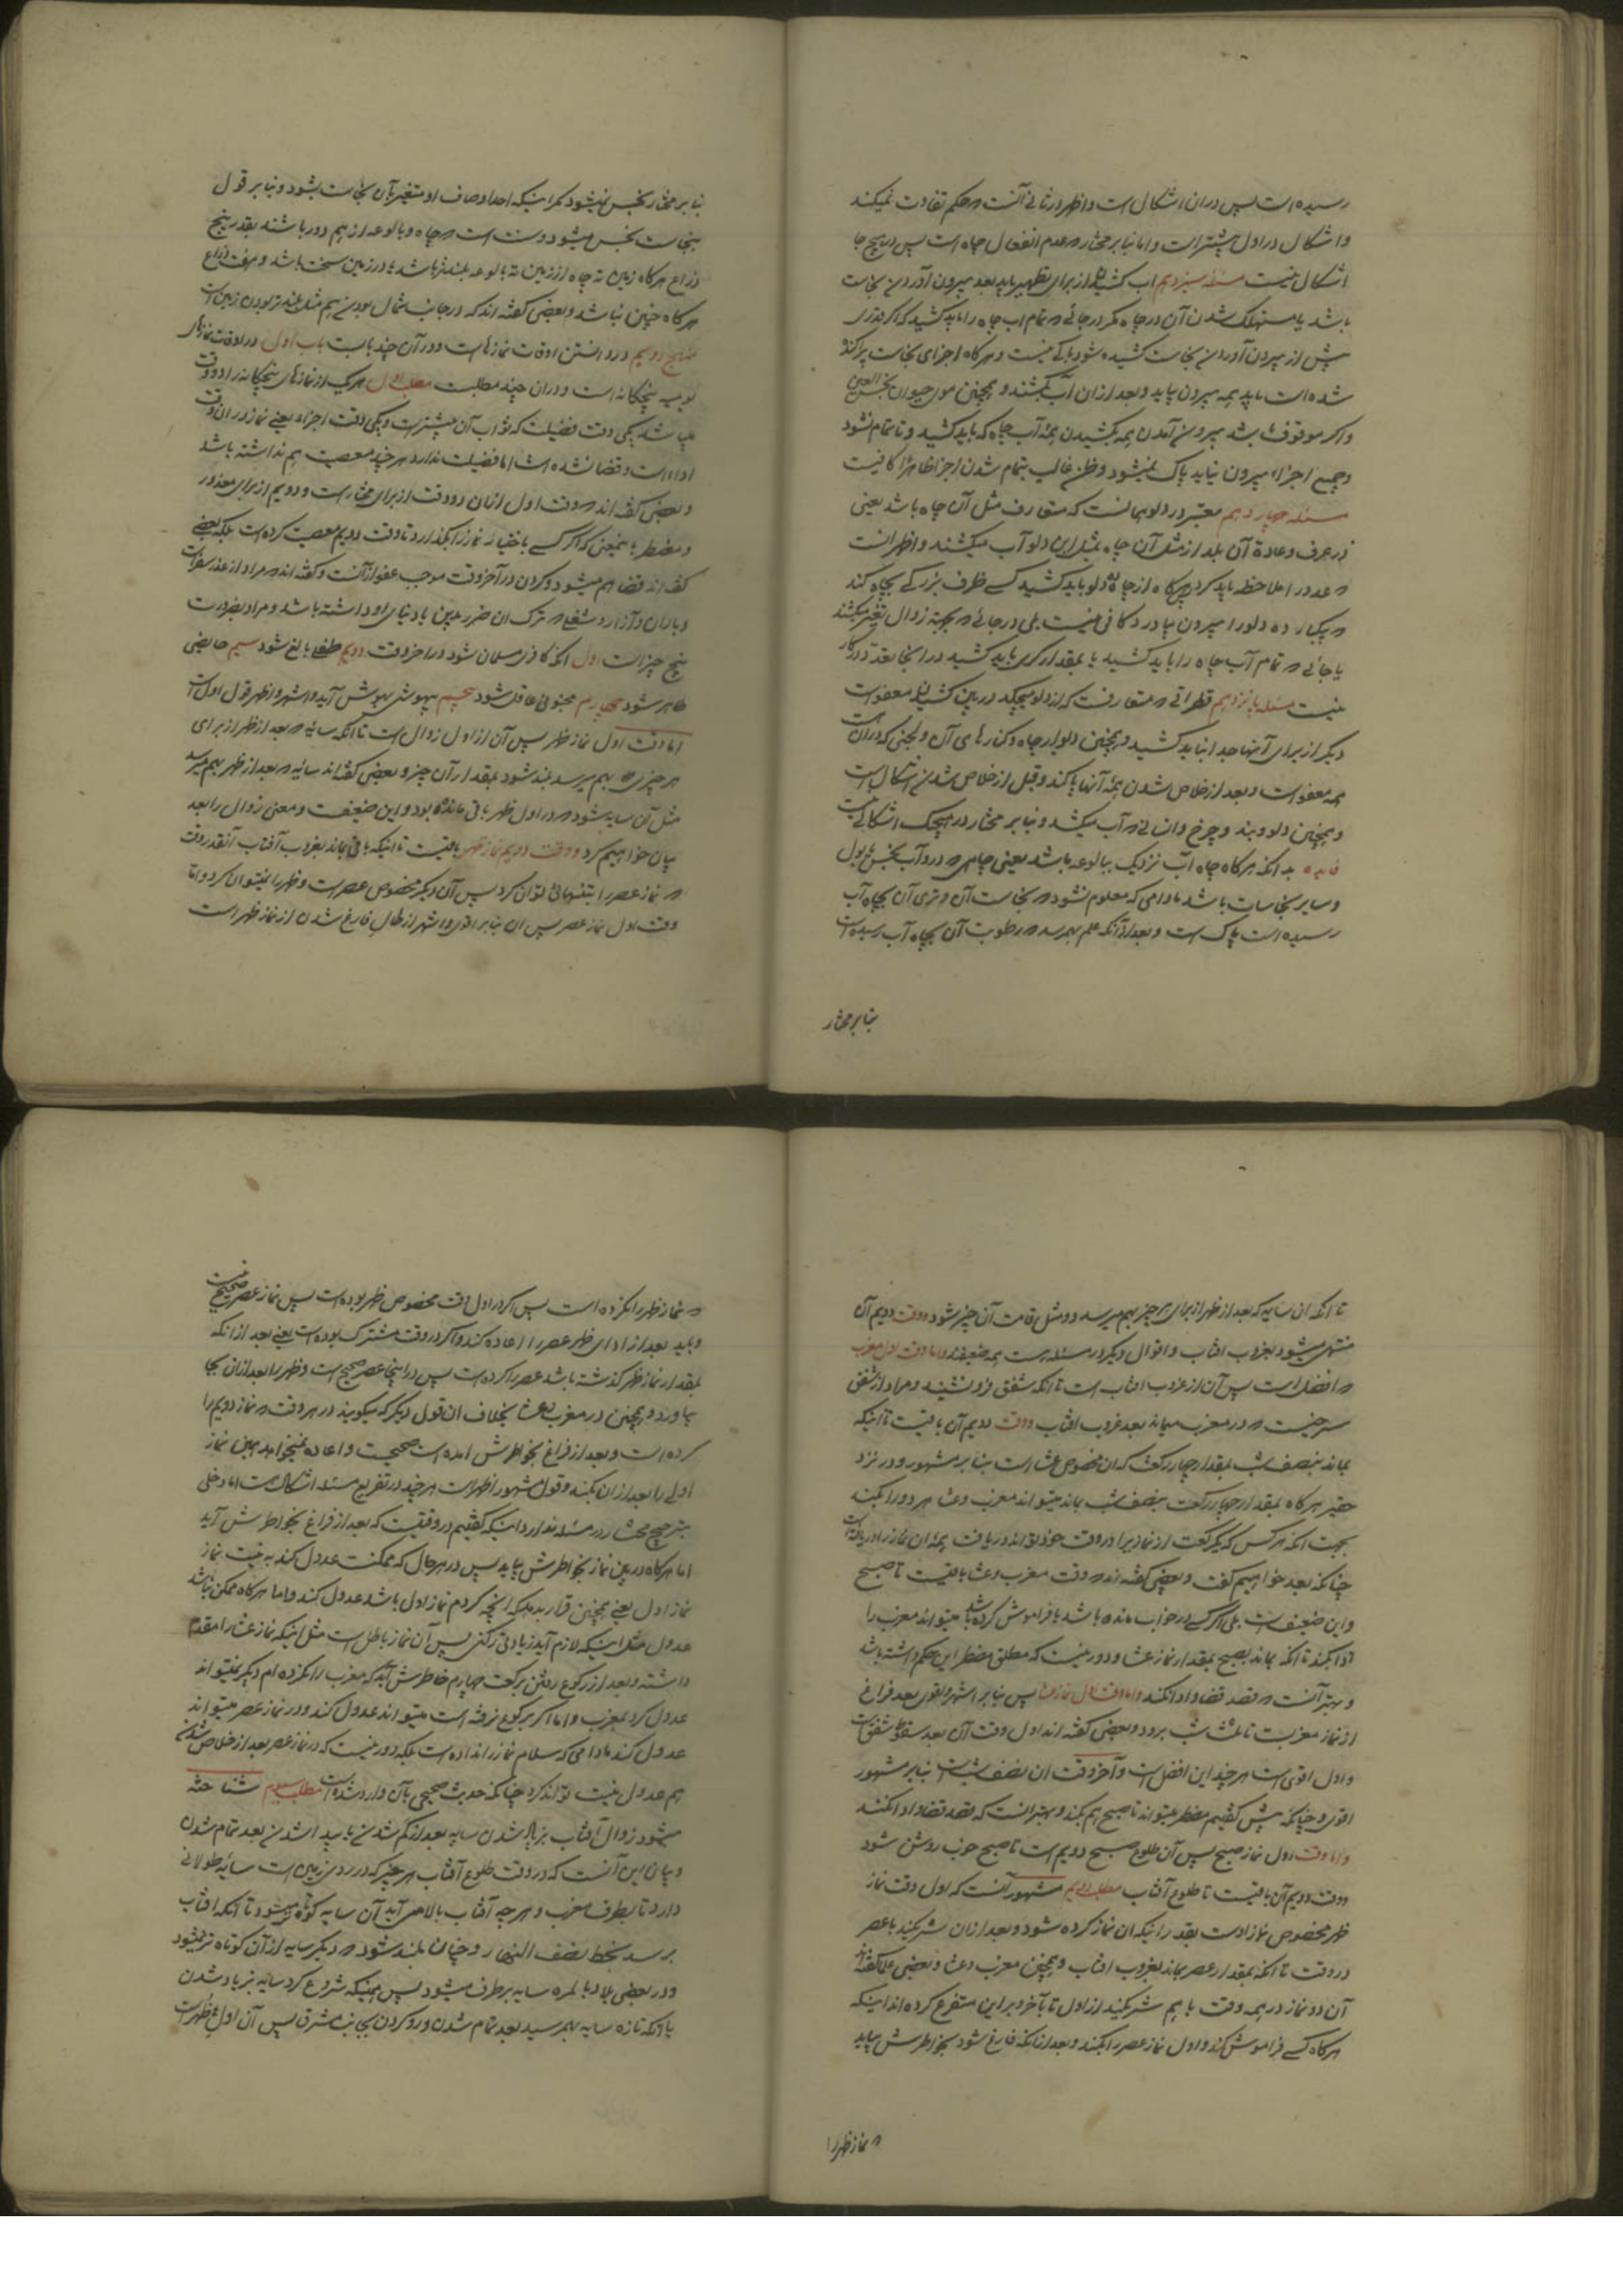 رسیده است پس در ان اشکال است و اظهر در ثانی آنست که حکم تفاوت نمیکند
و اشکال در اول بیشتر است و اما بنا بر مختار که عدم انفعال چاه است پس در هیچ جا
اشکال نیست مسئله سیزدهم اب کشیدن از برای تطهیر باید بعد بیرون آوردن نجاست
باشد یا مستهلک شدن آن در چاه مگر در جائی که تمام اب چاه را باید کشید که اگر قدری
پیش از بیرون آوردن نجاست کشیده شود باکی نیست و هرگاه اجزای نجاست پراکنده
شده است باید همه بیرون بیاید و بعد از ان آب بکشند و همچنین موی حیوان نجس العین
و اگر موقوف باشد بیرون آمدن همه بکشیدن همه آب چاه که باید کشید و تا تمام نشود
و جمیع اجزاء بیرون نیاید پاک نمیشود و ظن غالب بتمام شدن اجزا ظاهرا کافیست
مسئله چهاردهم معتبر در دلو همانست که متعارف مثل آن چاه باشد یعنی
در عرف و عادة آن بلد از مثل آن چاه بمثل این دلو آب میکشند و اظهر انست
که عدد را ملاحظه باید کرد پس هرگاه از چاه ده دلو باید کشید کسی ظرف بزرگی بچاه کند
که بیکبار ده دلو را بیرون بیاورد کافی نیست بلی در جائی که بجهة زوال تغیر میکشند
یا جائی که تمام آب چاه را باید کشید یا بمقدار کری باید کشید در اینجا تعدد در کار
نیست مسئله پانزدهم قطراتی که متعارفست که از دلو میچکد در بین کشیدن معفواست
دیگر از برای آنها جدا نباید کشید و همچنین دیوار چاه و کنارهای آن و لجنی که در آن است
همه معفو است و بعد از خلاص شدن همه آنها پاکند و قبل از خلاص شدن اشکال است
و همچنین دلو و بند و چرخ و انسانی که آب میکشد و بنا بر مختار در هیچیک اشکالی نیست
فایده بدانکه هرگاه چاه آب نزدیک ببالوعه باشد یعنی چاهی که در و آب نجس یا بول
و سایر نجاسات باشد مادامی که معلوم نشود که نجاست آن و تری آن بچاه آب
رسیده است پاک است و بعد از آنکه علم بهمرسد که رطوبت آن بچاه آب رسیده است
بنا بر مختار
بنا بر مختار نجس نمیشود مگر اینکه احد اوصاف او متغیر بآن نجاست بشود و بنا بر قول
بنجاست نجس میشود و سنت است که چاه و بالوعه از هم دور باشند بقدر پنج
ذراع هرگاه زمین ته چاه از زمین ته بالوعه بلندتر باشد یا در زمین سخت باشد و هفت ذراع
هرگاه چنین نباشد و بعضی گفته اند که در جانب شمال بودن هم مثل بلندتر بودن زمین است
منهج دویم در دانستن اوقات نمازهاست و در آن چند بابست باب اول در اوقات نمازهای
یومیه پنجگانه است و در ان چند مطلبست مطلب اول هر یک از نمازهای پنجگانه را دو وقت
میباشد یکی وقت فضیلت که ثواب آن بیشتر است و یکی وقت اجزاء یعنی نماز در ان وقت
اداء است و قضا نشده است اما فضیلت ندارد هر چند معصیت هم نداشته باشد
و بعضی گفته اند که وقت اول از ان دو وقت از برای مختار است و دویم از برای معذور
و مضطر باینمعنی که اگر کسی باختیار نماز را بگذارد تا وقت دویم معصیت کرده است بلکه بعضی
گفته اند قضا هم میشود و کردن در آخر وقت موجب عفو از آنست و گفته اند که مراد از عذر سفر است
و باران و آزار و شغلی که ترک ان ضرر بدین یا دنیای او داشته باشد و مراد بضرورت
پنج چیز است اول انکه کافری مسلمان شود در اخر وقت دویم طفلی بالغ شود سیم حایضی
طاهر شود چهارم مجنونی عاقل شود پنجم بیهوشی بهوش آید و اشهر و اظهر قول اول است
اما وقت اول نماز ظهر پس آن از اول زوال است تا آنکه سایه که بعد از ظهر از برای
هر چیزی بهم میرسد بلند شود بمقدار آن چیز و بعضی گفته اند سایه که بعد از ظهر بهم میرسد
مثل آن سایه شود که در اول ظهر باقی مانده بود و این ضعیفست و معنی زوال را بعد
بیان خواهیم کرد و وقت دویم نماز ظهر باقیست تا اینکه باقی بماند بغروب آفتاب آنقدر وقت
که نماز عصر را بتنهائی توان کرد پس آن دیگر مخصوص عصر است و ظهر را نمیتوان کرد و اما
وقت اول نماز عصر پس ان بنا بر اقوی و اشهر از حال فارغ شدن از نماز ظهر است
تا انکه ان سایه که بعد از ظهر از برای هر چیز بهم میرسد دو مثل قامت آن چیز شود و وقت دویم آن
منتهی میشود بغروب افتاب و اقوال دیگر در مسئله هست همه ضعیفند و اما وقت اول مغرب
که افضل است پس آن از غروب افتاب است تا انکه شفق فرو نشیند و مراد از شفق
سرخیست که در مغرب میماند بعد غروب افتاب و وقت دویم آن باقیست تا اینکه
بماند بنصف شب بمقدار چهار رکعت که ان مخصوص عشا است بنا بر مشهور و در نزد
حقیر هرگاه بمقدار چهار رکعت بنصف شب بماند میتواند مغرب و عشا هر دو را بکند
بجهت انکه هر کس که یکرکعت از نماز را در وقت خود تواند دریافت همه ان نماز را دریافته است
چنانکه بعد خواهیم گفت و بعضی گفته اند که وقت مغرب و عشا باقیست تا صبح
و این ضعیف است بلی اگر کسی در خواب مانده باشد یا فراموش کرده باشد میتواند مغرب را
ادا بکند تا انکه بماند بصبح بمقدار نماز عشا و دور نیست که مطلق مضطر این حکم داشته باشد
و بهتر آنست که قصد قضا و ادا نکند و اما وقت اول نماز عشا پس بنا بر اشهر و اقوی بعد فراغ
از نماز مغربست تا ثلث شب برود و بعضی گفته اند اول وقت آن بعد سقوط شفق است
و اول اقوی است هر چند این افضل است و آخر وقت ان نصف شب است بنا بر مشهور
اقوی و چنانکه پیش گفتیم مضطر میتواند تا صبح هم بکند و بهتر انست که قصد قضا و ادا نکند
و اما وقت اول نماز صبح پس آن طلوع صبح دویم است تا صبح خوب روشن شود
و وقت دویم آن باقیست تا طلوع آفتاب مطلب دویم مشهور آنست که اول وقت نماز
ظهر مخصوص نماز اوست بقدر اینکه ان نماز کرده شود و بعد از ان شریکند با عصر
در وقت تا انکه بمقدار عصر بماند بغروب افتاب و همچنین مغرب و عشا و بعضی علما گفته اند
آن دو نماز در همه وقت با هم شریکند از اول تا بآخر و بر این متفرع کرده اند اینکه
هرگاه کسی فراموش کند و اول نماز عصر را بکند و بعد از انکه فارغ شود بخواطرش بیاید
که نماز ظهر را
که نماز ظهر را نکرده است پس اگر در اول وقت مخصوص ظهر بوده است پس نماز عصر صحیح نیست
و باید بعد از ادای ظهر عصر را اعاده کند و اگر در وقت مشترک بوده است یعنی بعد از انکه
بمقدار نماز ظهر گذشته باشد عصر را کرده است پس در اینجا عصر صحیح است و ظهر را بعد از ان بجا
بیاورد و همچنین در مغرب و عشا بخلاف ان قول دیگر که میگویند در هر وقت که نماز دویم را
کرده است و بعد از فراغ بخواطرش امده است صحیحست و اعاده نمیخواهد همان نماز
اولی را بعد از ان بکند و قول مشهور اظهر است هر چند در تفریع مسئله اشکال هست اما دخلی
بترجیح مختار در مسئله ندارد و اینکه گفتیم در وقتیست که بعد از فراغ بخواطرش آید
اما هرگاه در بین نماز بخواطرش بیاید پس در هر حال که ممکنست عدول کند به نیت نماز
نماز اول یعنی همچنین قرار بدهد که انچه کردم نماز اول باشد عدول کند و اما هرگاه ممکن نباشد
عدول مثل اینکه لازم آید زیادتی رکنی پس آن نماز باطل است مثل اینکه نماز عشا را مقدم
داشته و بعد از رکوع رفتن برکعت چهارم خاطرش آید که مغرب را نکرده ام دیگر نمیتواند
عدول کرد بمغرب و اما اگر برکوع نرفته است میتواند عدول کند و در نماز عصر میتواند
عدول کند مادامی که سلام نماز را نداده است بلکه دور نیست که در نماز عصر بعد از خلاص شدن
هم عدول نیت تواند کرد چنانکه حدیث صحیحی بآن وارد شده است مطلب سیم شناخته
میشود زوال آفتاب بزیاد شدن سایه بعد از کم شدن یا پیدا شدن بعد تمام شدن
و بیان این آنست که در وقت طلوع آفتاب هر چیز که در روی زمین است سایه طولانی
دارد تا بطرف مغرب و هر چه آفتاب بالا می آید آن سایه کوتاه تر میشود تا آنکه افتاب
برسد بخط نصف النهار و چنان بلند شود که دیگر سایه از آن کوتاه تر نمیشود
و در بعضی بلاد بالمره سایه بر طرف میشود پس همینکه شروع کرد سایه بزیاد شدن
یا انکه تازه سایه بهمرسید بعد تمام شدن و رو کردن بجانب مشرق پس آن اول ظهر است